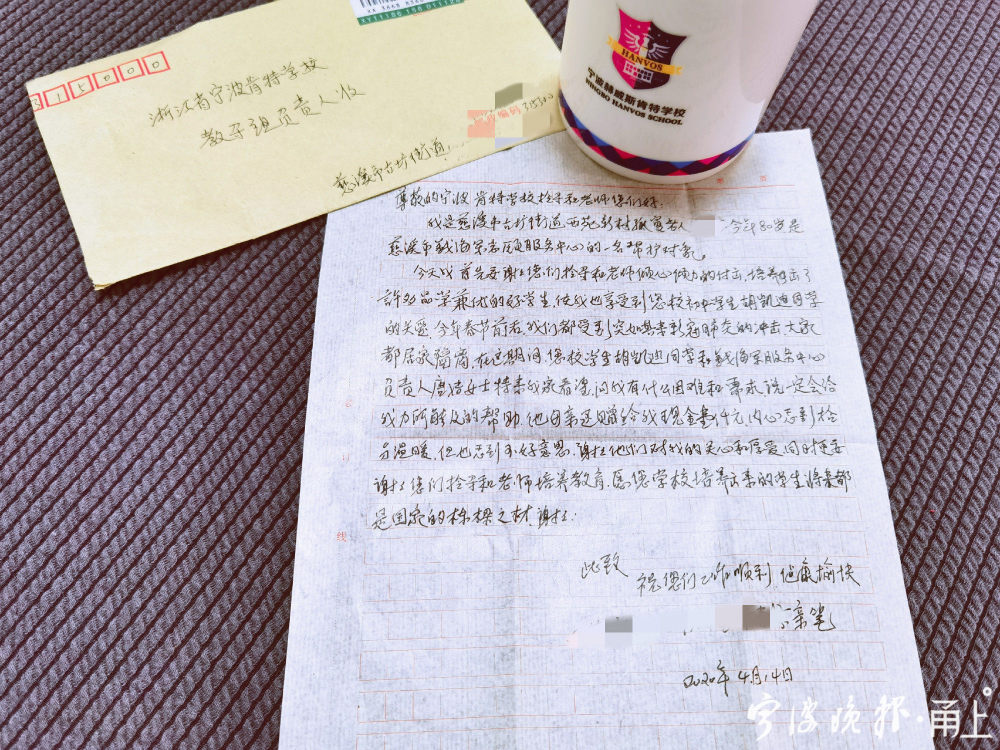 XY11186 156 01112
315000
浙江省宁波肯特学校
教导组负责人收
邮政编码 315300
慈溪市古坊街道
HANVOS
宁波赫威斯肯特学校
NINGBO HANVOS SCHOOL
尊敬的宁波肯特学校领导和老师您们好:
我是慈溪市古坊街道西苑新村孤寡老人 今年80岁是
慈溪市钱海军志愿服务中心的一名帮护对象。
今天我首先要谢谢您们领导和老师倾心倾力的付出,培养出了
许多品学兼优的好学生,使我也享受到您校初中学生胡凯迪同学
的关爱,今年春节前后,我们都受到突如其来新冠肺炎的冲击大家
都居家隔离,在这期间,您校学生胡凯迪同学和钱海军服务中心
负责人唐洁女士特来我家看望,问我有什么困难和需求,说一定会给
我力所能及的帮助,他母亲还赠给我现金叁仟元,内心感到格
外温暖,但也感到不好意思,谢谢他们对我的关心和厚爱,同时还要
谢谢您们领导和老师培养教育,愿您学校培养出来的学生将来都
是国家的栋梁之材 谢谢.
此致
祝您们工作顺利 健康愉快
亲笔
2020年4月14日
线
宁波晚报·甬上